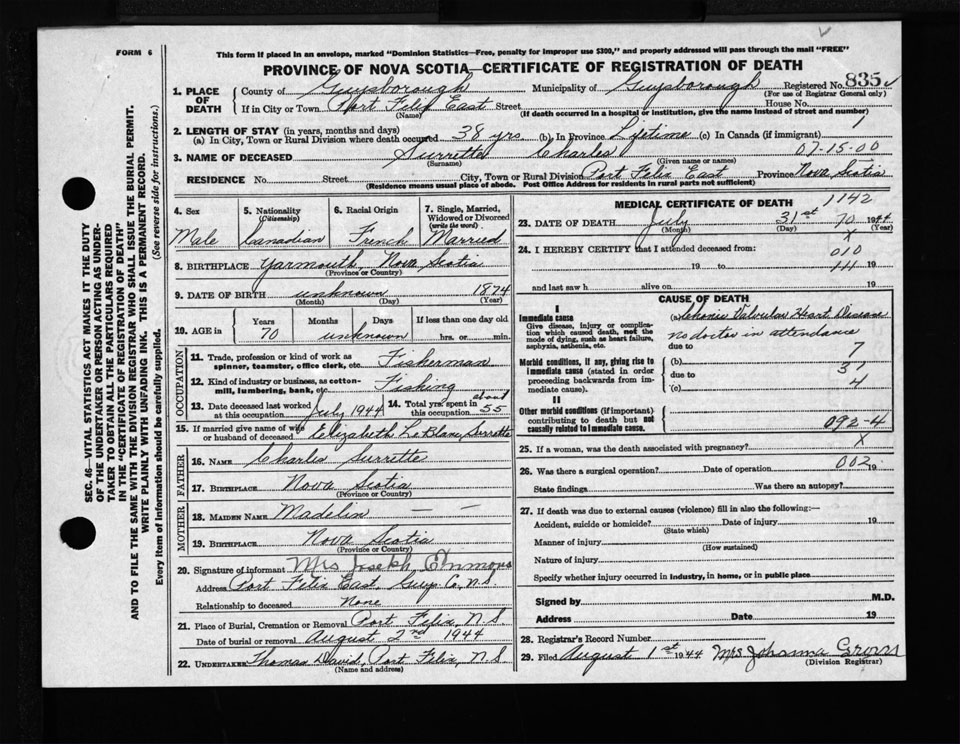 FORM 6
This form if placed in an envelope, marked "Dominion Statistics—Free, penalty for improper use $300," and properly addressed will pass through the mail "FREE"
PROVINCE OF NOVA SCOTIA—CERTIFICATE OF REGISTRATION OF DEATH
1. PLACE OF DEATH
County of Guysborough Municipality of Guysborough Registered No. 835
(For use of Registrar General only)
If in City or Town Port Felix East Street House No.
(Name) (If death occurred in a hospital or institution, give the name instead of street and number)
2. LENGTH OF STAY (in years, months and days)
(a) In City, Town or Rural Division where death occurred 38 yrs (b). In Province Lifetime (c) In Canada (if immigrant) 1
3. NAME OF DECEASED Surrette Charles 07-15-00
(Surname) (Given name or names)
RESIDENCE No. Street City, Town or Rural Division Port Felix East Province Nova Scotia
(Residence means usual place of abode. Post Office Address for residents in rural parts not sufficient)
4. Sex Male
5. Nationality (Citizenship) Canadian
6. Racial Origin French
7. Single, Married, Widowed or Divorced (write the word) Married
8. BIRTHPLACE Yarmouth, Nova Scotia
(Province or Country)
9. DATE OF BIRTH unknown 1874
(Month) (Day) (Year)
10. AGE in Years Months Days If less than one day old
70 unknown hrs. or min.
OCCUPATION
11. Trade, profession or kind of work as spinner, teamster, office clerk, etc. Fisherman
12. Kind of industry or business, as cotton-mill, lumbering, bank, etc. Fishing
13. Date deceased last worked at this occupation July 1944
14. Total yrs. spent in this occupation about 55
15. If married give name of wife or husband of deceased Elizabeth LeBlanc Surrette
FATHER
16. NAME Charles Surrette
17. BIRTHPLACE Nova Scotia
(Province or Country)
MOTHER
18. MAIDEN NAME Madelin — —
19. BIRTHPLACE Nova Scotia
(Province or Country)
20. Signature of informant Mrs Joseph
Address Port Felix East, Guys. Co., N.S.
Relationship to deceased None
21. Place of Burial, Cremation or Removal Port Felix, N.S.
Date of burial or removal August 2nd 1944
22. UNDERTAKER Thomas David, Port Felix, N.S
(Name and address)
MEDICAL CERTIFICATE OF DEATH 1142
23. DATE OF DEATH July 31st 70 1944
(Month) (Day) (Year)
X
24. I HEREBY CERTIFY that I attended deceased from: 010
19 to 19
and last saw h alive on 19
CAUSE OF DEATH
I
Immediate cause
Give disease, injury or complication which caused death, not the mode of dying, such as heart failure, asphyxia, asthenia, etc.
(a) Chronic Valvular Heart Disease
no doctor in attendance
due to 7
Morbid conditions, if any, giving rise to immediate cause (stated in order proceeding backwards from immediate cause).
(b) 37
due to
(c) 4
II
Other morbid conditions (if important) contributing to death but not causally related to immediate cause.
092-4
25. If a woman, was the death associated with pregnancy? X
26. Was there a surgical operation? Date of operation 002 19
State findings Was there an autopsy?
27. If death was due to external causes (violence) fill in also the following:—
Accident, suicide or homicide? Date of injury 19
(State which)
Manner of injury
(How sustained)
Nature of injury
Specify whether injury occurred in industry, in home, or in public place
Signed by M.D.
Address Date 19
28. Registrar's Record Number
29. Filed August 1st 1944 Mrs Johanna
(Division Registrar)
SEC. 46—VITAL STATISTICS ACT MAKES IT THE DUTY
OF THE UNDERTAKER OR PERSON ACTING AS UNDER-
TAKER TO OBTAIN ALL THE PARTICULARS REQUIRED
IN THE "CERTIFICATE OF REGISTRATION OF DEATH"
AND TO FILE THE SAME WITH THE DIVISION REGISTRAR WHO SHALL ISSUE THE BURIAL PERMIT.
WRITE PLAINLY WITH UNFADING INK. THIS IS A PERMANENT RECORD.
Every item of information should be carefully supplied. (See reverse side for instructions.)